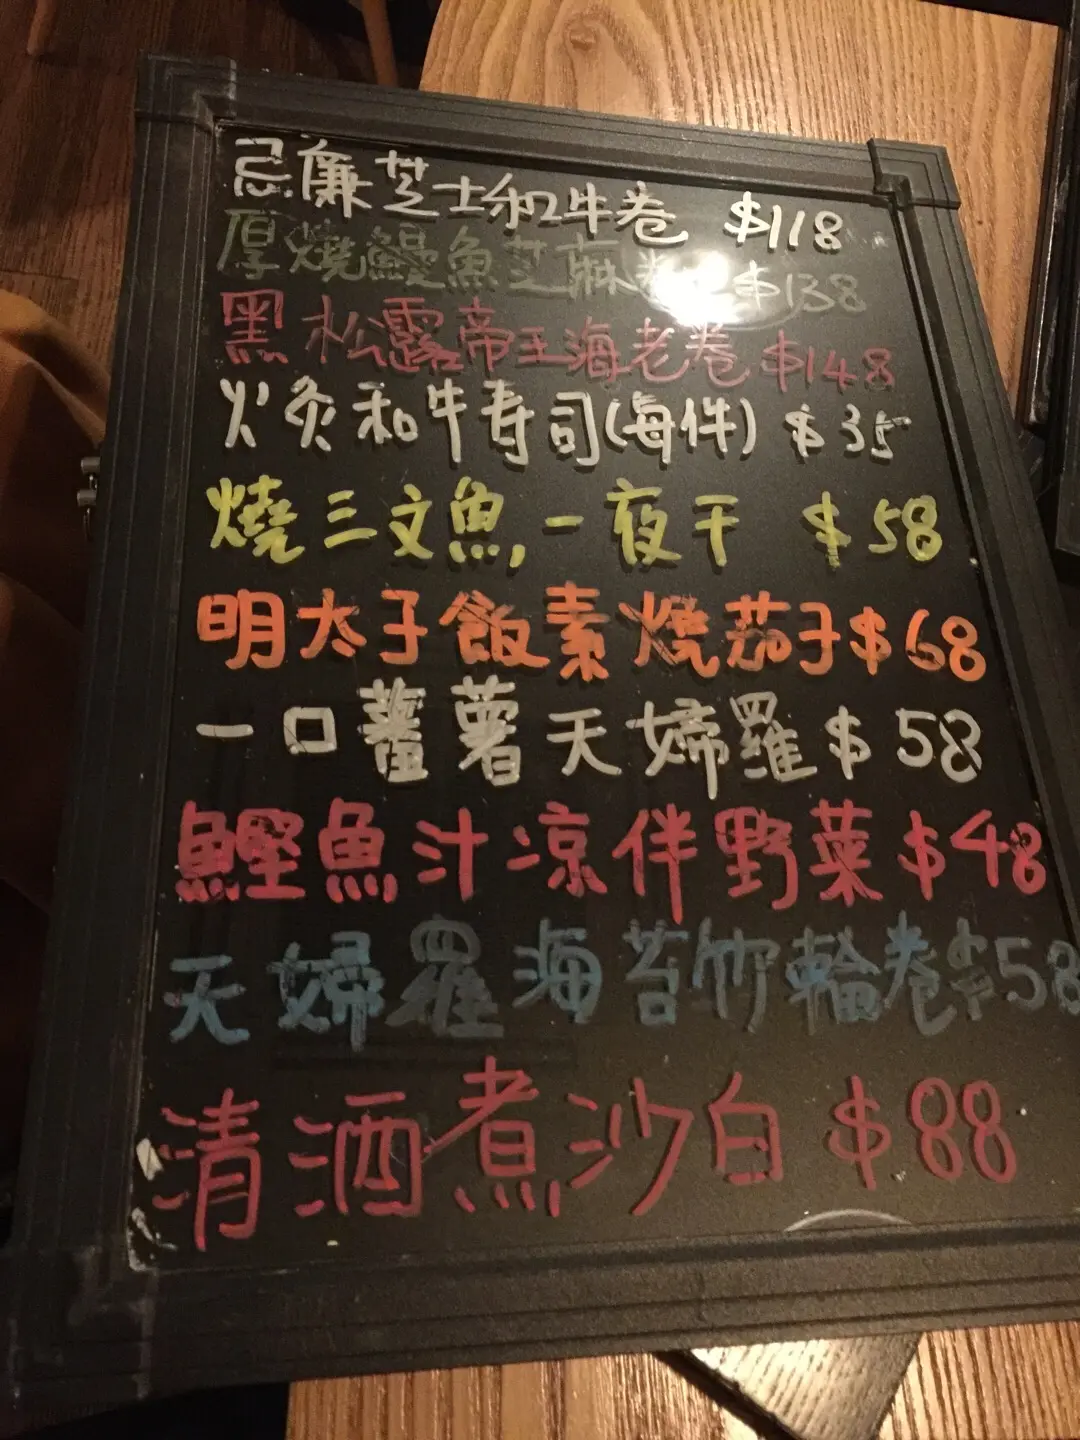 忌廉芝士和牛卷 $118
厚燒鰻魚芝麻卷 $138
黑松露帝王海老卷 $148
火灸和牛寿司(每件) $35
燒三文魚,一夜干 $58
明太子飯素燒茄子 $68
一口蕃薯天婦羅 $58
鰹魚汁凉伴野菜 $48
天婦羅海苔竹輪卷 $58
清酒煮沙白 $88